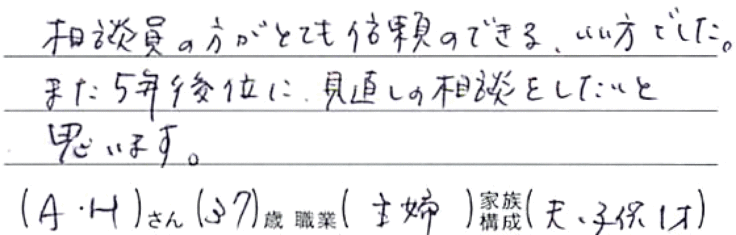 相談員の方がとても信頼のできる、いい方でした。
また5年後位に、見直しの相談をしたいと
思います。
(A・H)さん(37)歳 職業(主婦)家族構成(夫、子供1才)